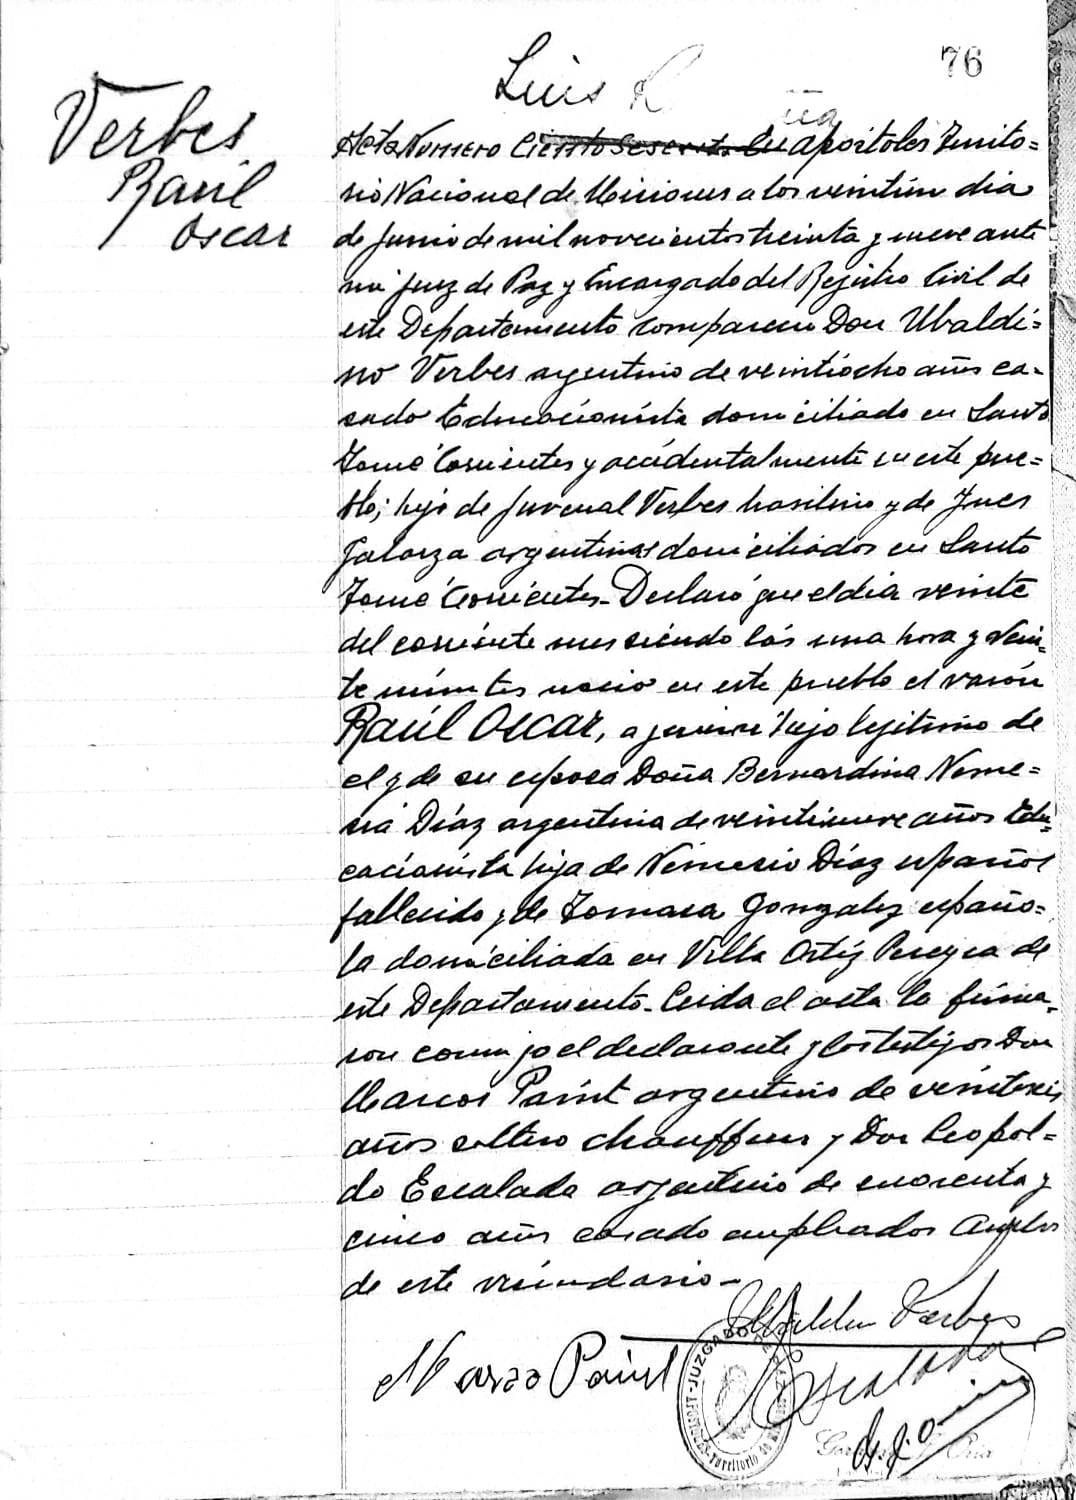 76
Luis
Verbes
Raúl
Oscar
Acta Numero Ciento Sesenta En apóstoles Territo=
rio Nacional de Misiones a los veintiun dia
de junio de mil novecientos treinta y nueve ante
mi juez de Paz y Encargado del Rejistro Civil de
este Departamento comparecio Don Ubaldi=
no Verbes argentino de veintiocho años ca-
sado Educacionista domiciliado en Santo
Tomé Corrientes y accidentalmente en este pue=
blo; hijo de Juvenal Verbes brasilero y de Ines
Galarza argentina domiciliados en Santo
Tomé Corrientes_Declaró que el dia veinte
del corriente mes siendo las una hora y vein-
te minutos nacio en este pueblo el varón
Raúl Oscar, hijo lejitimo de
el y de su esposa Doña Bernardina Neme=
sia Díaz argentina de veintinueve años Edu-
cacionista hija de Nemesio Díaz español
fallecido y de Tomasa Gonzalez españo=
la domiciliada en Villa Ortíz Pereyra de
este Departamento_Leida el acta la firma-
ron conmigo el declarante y los testigos Don
Marcos Paint argentino de veintiseis
años soltero chauffeur y Don Leopol=
do Escalada argentino de cuarenta y
cinco años casado empleados Ambos
de este vecindario_
Ubaldino Verbes
Marco Paint
Escalada
JUZGADO DE PAZ
APOSTOLES
Territorio de Misiones